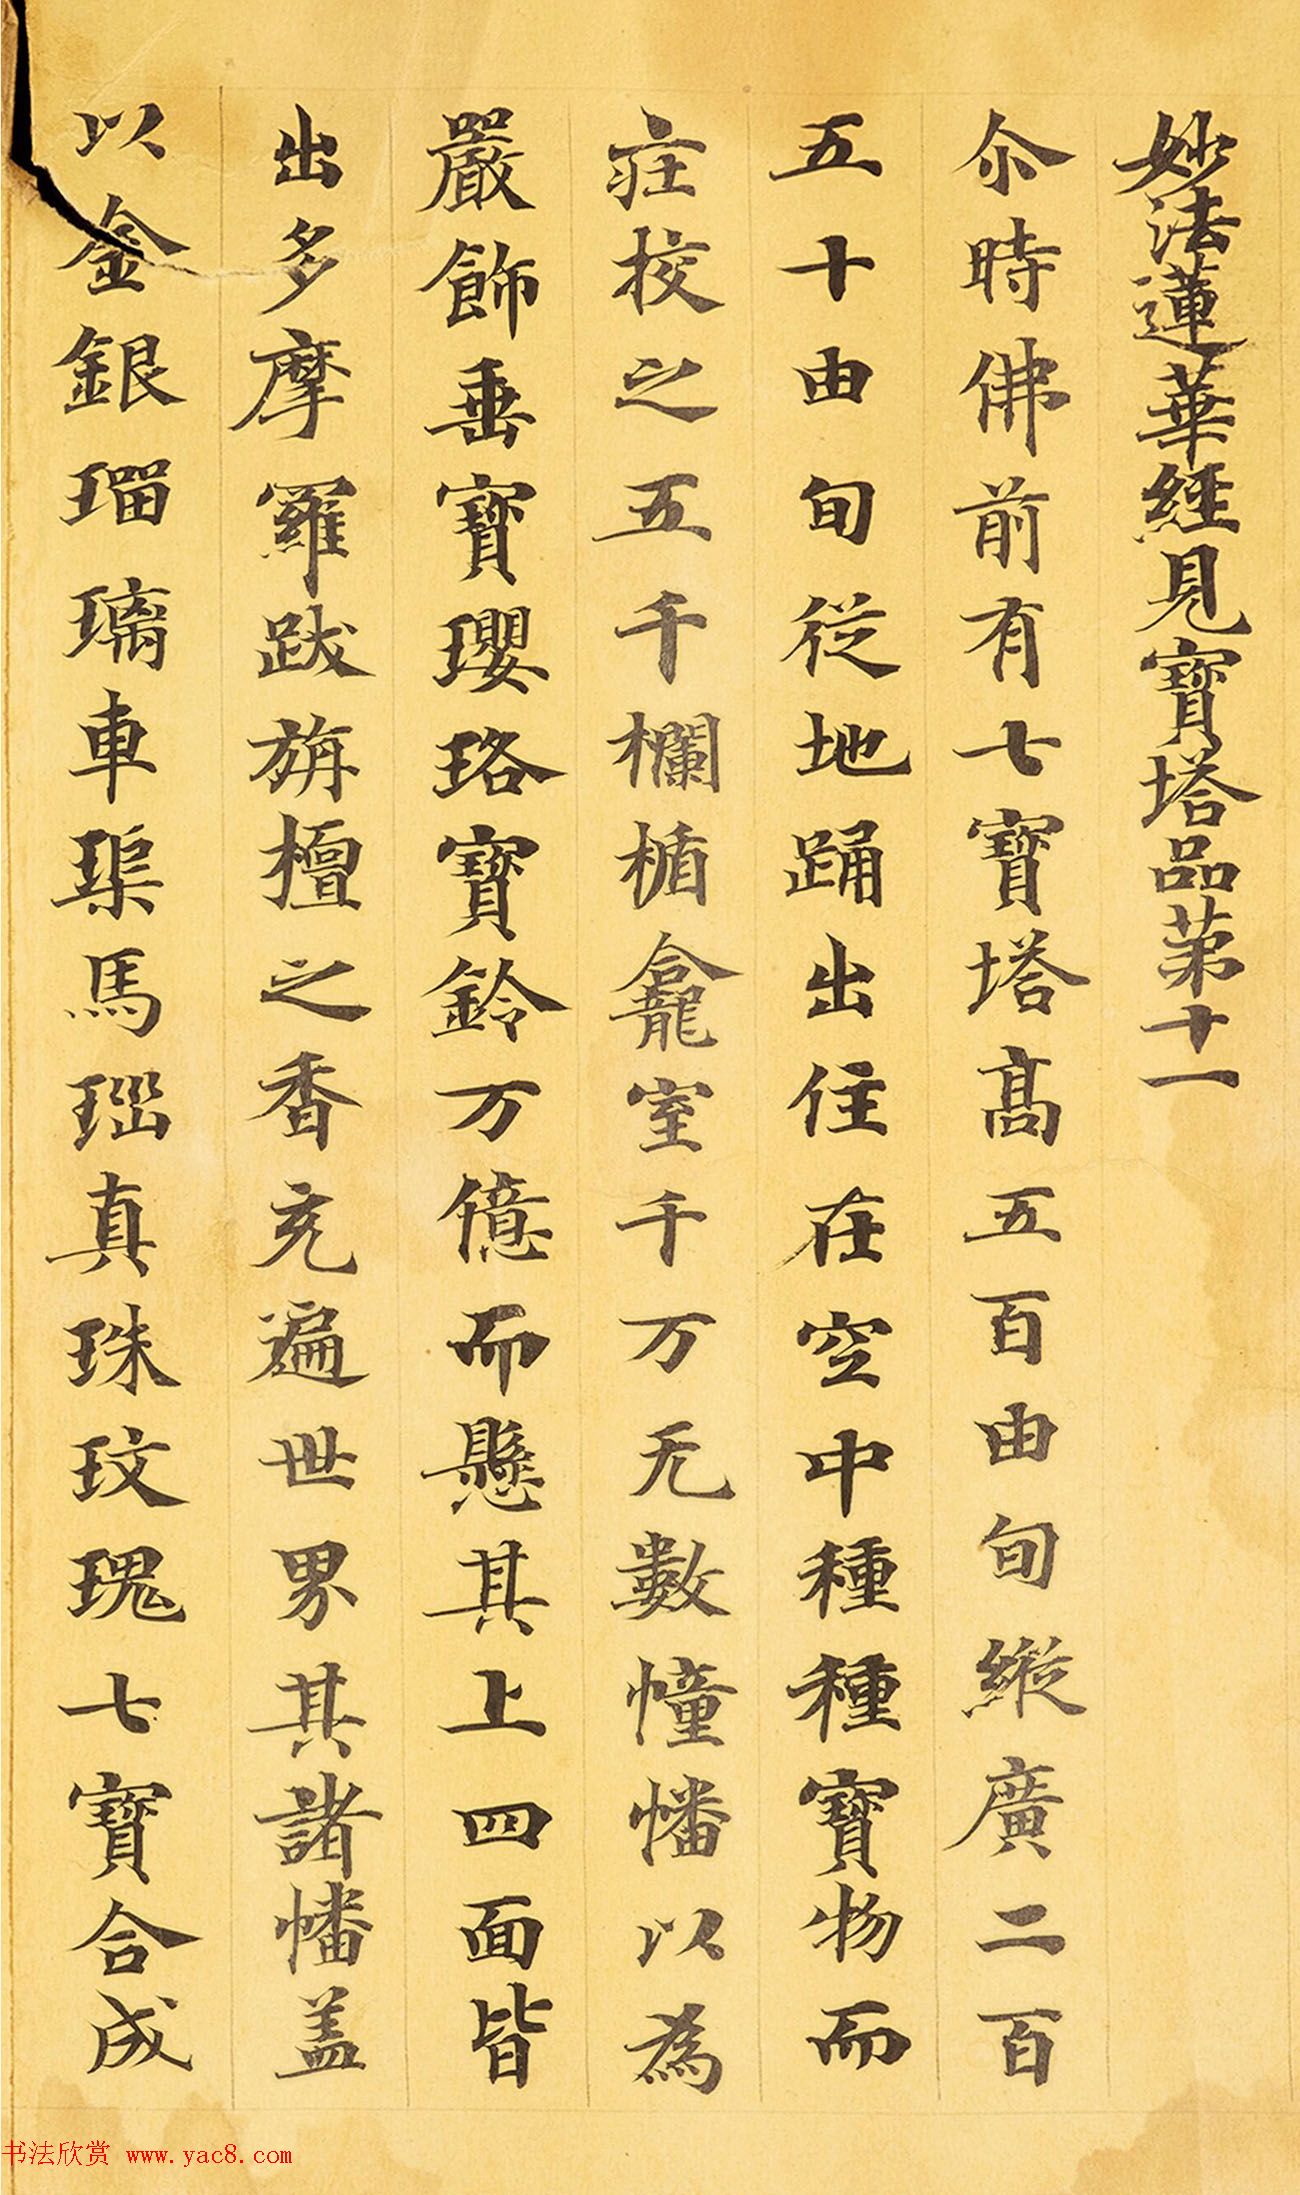 妙法蓮華經見寶塔品第十一
尒時佛前有七寶塔高五百由旬縱廣二百
五十由旬從地踊出住在空中種種寶物而
莊校之五千欄楯龕室千万无數幢幡以為
嚴飾垂寶瓔珞寶鈴万億而懸其上四面皆
出多摩羅跋旃檀之香充遍世界其諸幡盖
以金銀瑠璃車璖馬瑙真珠玫瑰七寶合成
书法欣赏 www.yac8.com